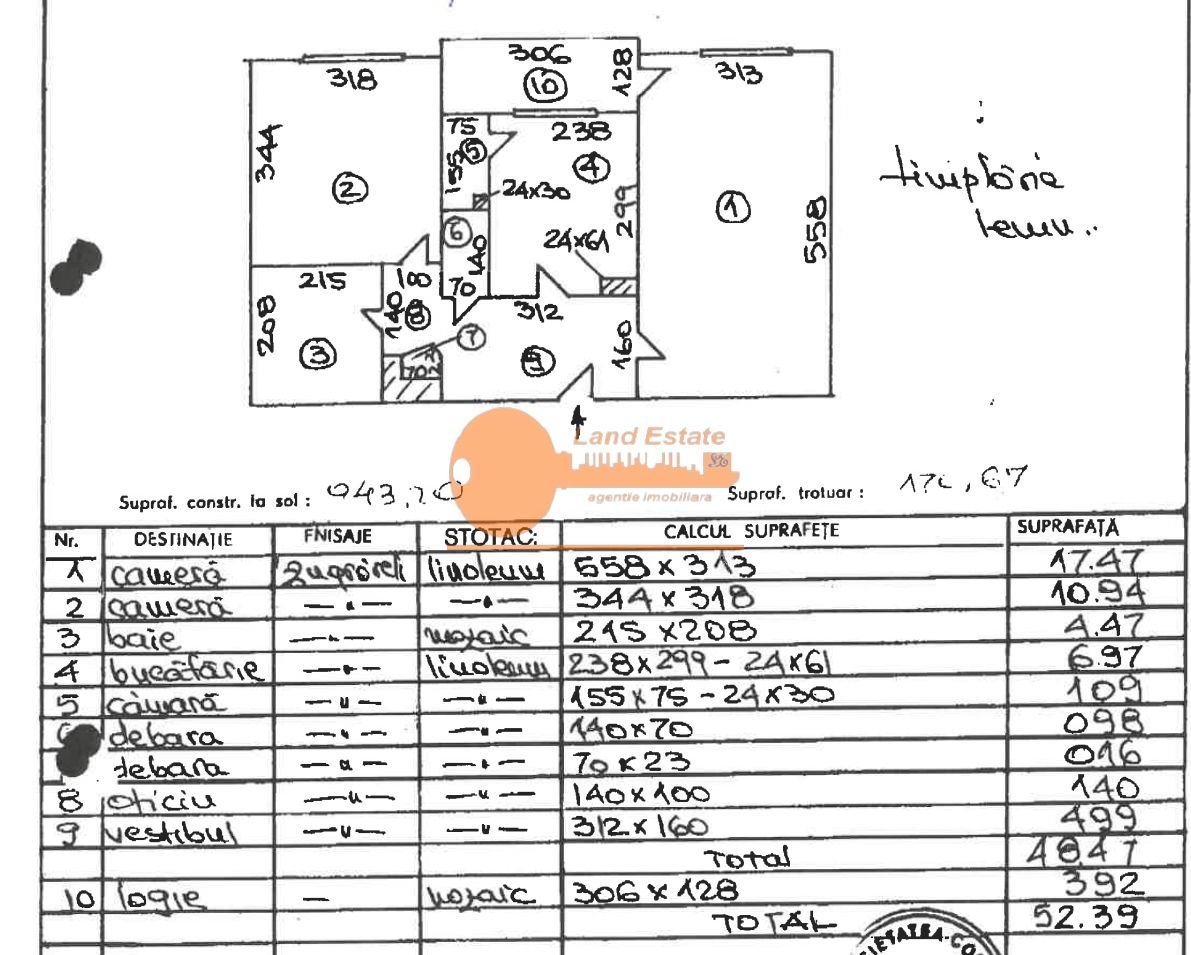 306
128
10
318
313
344
75
238
5
155
4
2
24x30
299
1
558
6
140
24x61
215
100
70
312
208
140
8
7
3
70
160
tîmplărie
lemn..
Land Estate
agentie imobiliara
Supraf. constr. la sol : 943,70
Supraf. trotuar : 67
Nr. DESTINAȚIE FNISAJE STOTAC: CALCUL SUPRAFEȚE SUPRAFAȚĂ
1 cameră zugrăveli linoleum 558 x 313 17.47
2 cameră — " — — " — 344 x 318 10.94
3 baie — " — mozaic 215 x 208 4.47
4 bucătărie — " — linoleum 238 x 299 - 24 x 61 6.97
5 cămară — " — — " — 155 x 75 - 24 x 30 109
debara — " — — " — 140 x 70 098
debara — " — — " — 70 x 23 016
8 oficiu — " — — " — 140 x 100 140
9 vestibul — " — — " — 312 x 160 499
Total 48.47
10 logie — mozaic 306 x 128 392
TOTAL 52.39
IETATEA-CO